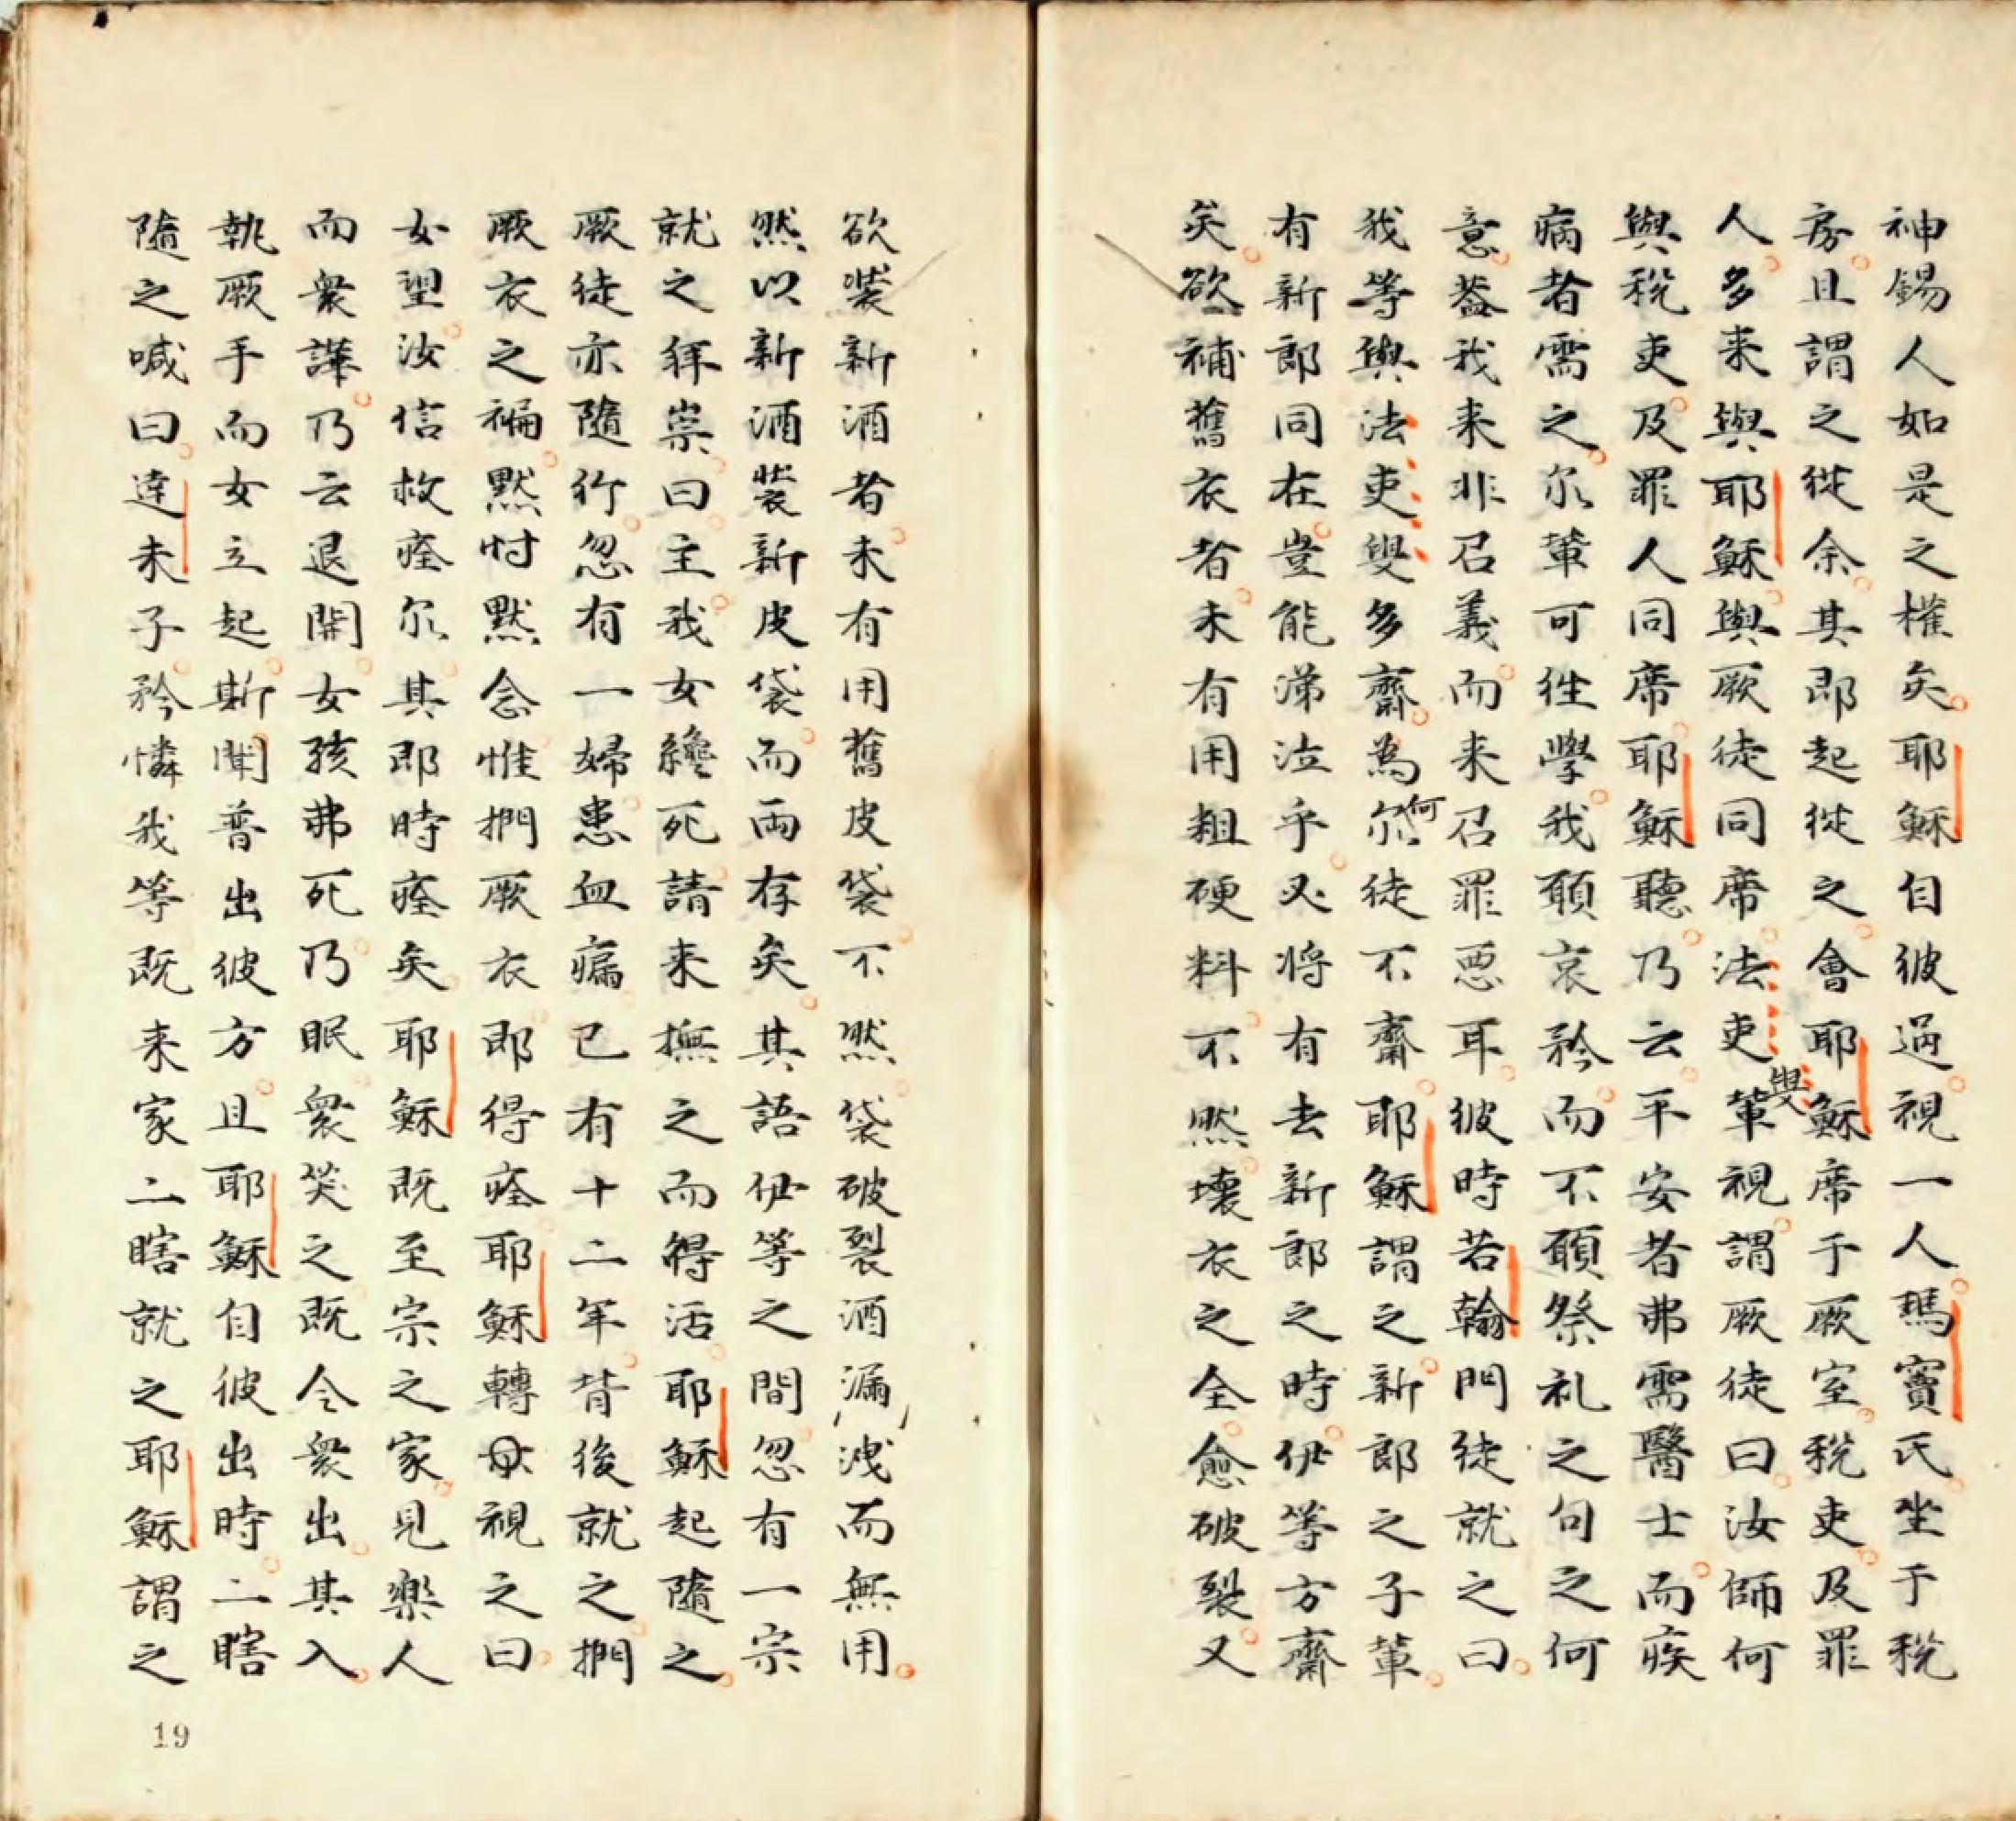 神錫人如是之權矣。耶穌自彼過。視一人。瑪竇氏。坐于稅
房。且謂之從余。其即起從之。會耶穌席于厥室。稅吏。及罪
人。多来與耶穌。與厥徒同席。法吏叟輩視。謂厥徒曰。汝師何
與稅吏。及罪人同席。耶穌聽。乃云。平安者弗需醫士。而疾
病者需之。尔輩可徃學。我願哀矜。而不願祭礼之句之何
意。葢我来非召義。而来召罪惡耳。彼時若翰門徒就之曰。
我等與法吏叟多齋。為何尔徒不齋。耶穌謂之。新郎之子輩。
有新郎同在。豈能涕泣乎。必将有去新郎之時。伊等方齋
矣。欲補舊衣者。未有用粗硬料。不然。壞衣之全。愈破裂。又
欲裝新酒者。未有用舊皮袋。不然。袋破裂酒漏洩而無用。
然以新酒裝新皮袋。而両存矣。其語伊等之間。忽有一宗
就之拜崇。曰。主。我女纔死。請来撫之而得活。耶穌起隨之。
厥徒亦隨行。忽有一婦患血痲已有十二年。背後就之。捫
厥衣之褊。黙忖黙念惟捫厥衣即得痊。耶穌轉身視之曰。
女望。汝信救痊尔。其即時痊矣。耶穌既至宗之家。見樂人
而衆譁。乃云退開。女孩弗死。乃眠。衆笑之。既令衆出。其入。
執厥手而女立起。斯聞普出彼方。且耶穌自彼出時。二瞎
隨之喊曰。達未子。矜憐我等。既来家二瞎就之。耶穌謂之
19